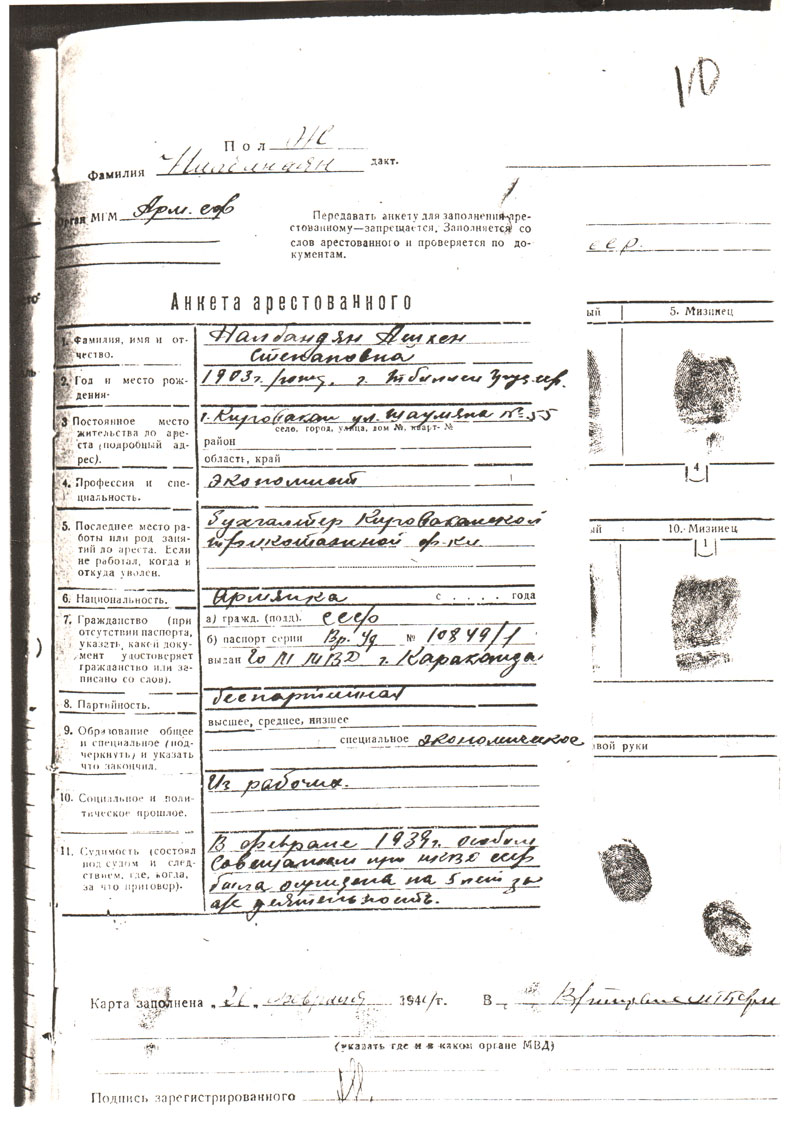 10
Пол Ж
Фамилия Налбандян дакт.
Орган МГМ Арм. сср
Передавать анкету для заполнения аре-
стованному—запрещается. Заполняется со
слов арестованного и проверяется по до-
кументам.
сср.
Анкета арестованного
ый 5. Мизинец
1. Фамилия, имя и от-
чество.
Налбандян Ашхен
Степановна
2. Год и место рож-
дения-
1903г. рожд. г. Тбилиси Груз. сср.
3 Постоянное место
жительства до аре-
ста (подробный ад-
рес).
г. Кировакан ул. Шаумяна № 55
село, город, улица, дом №, кварт- №
район
область, край
4
4. Профессия и спе-
циальность.
Экономист
5. Последнее место ра-
боты или род заня-
тий до ареста. Если
не работал, когда и
откуда уволен.
Бухгалтер Кироваканской
трикотажной ф-ки.
ый 10. Мизинец
1
6. Национальность.
Армянка с . . . . года
7. Гражданство (при
отсутствии паспорта,
указать, какой доку-
мент удостоверяет
гражданство или за-
писано со слов).
а) гражд. (подд). ссср
б) паспорт серии № 10849/1
выдан МВД г. Караганда
8. Партийность.
беспартийная
9. Образование общее
и специальное (под-
черкнуть) и указать
что закончил.
высшее, среднее, низшее
специальное экономическое
вой руки
10. Социальное и поли-
тическое прошлое.
Из рабочих.
11. Судимость (состоял
под судом и след-
ствием, где, когда,
за что приговор).
В феврале 1939г. особым
совещанием при НКВД ссср
была осуждена на 5 лет за
а/с деятельность.
Карта заполнена февраля 194 г. В
(указать где и в каком органе МВД)
Подпись зарегистрированного